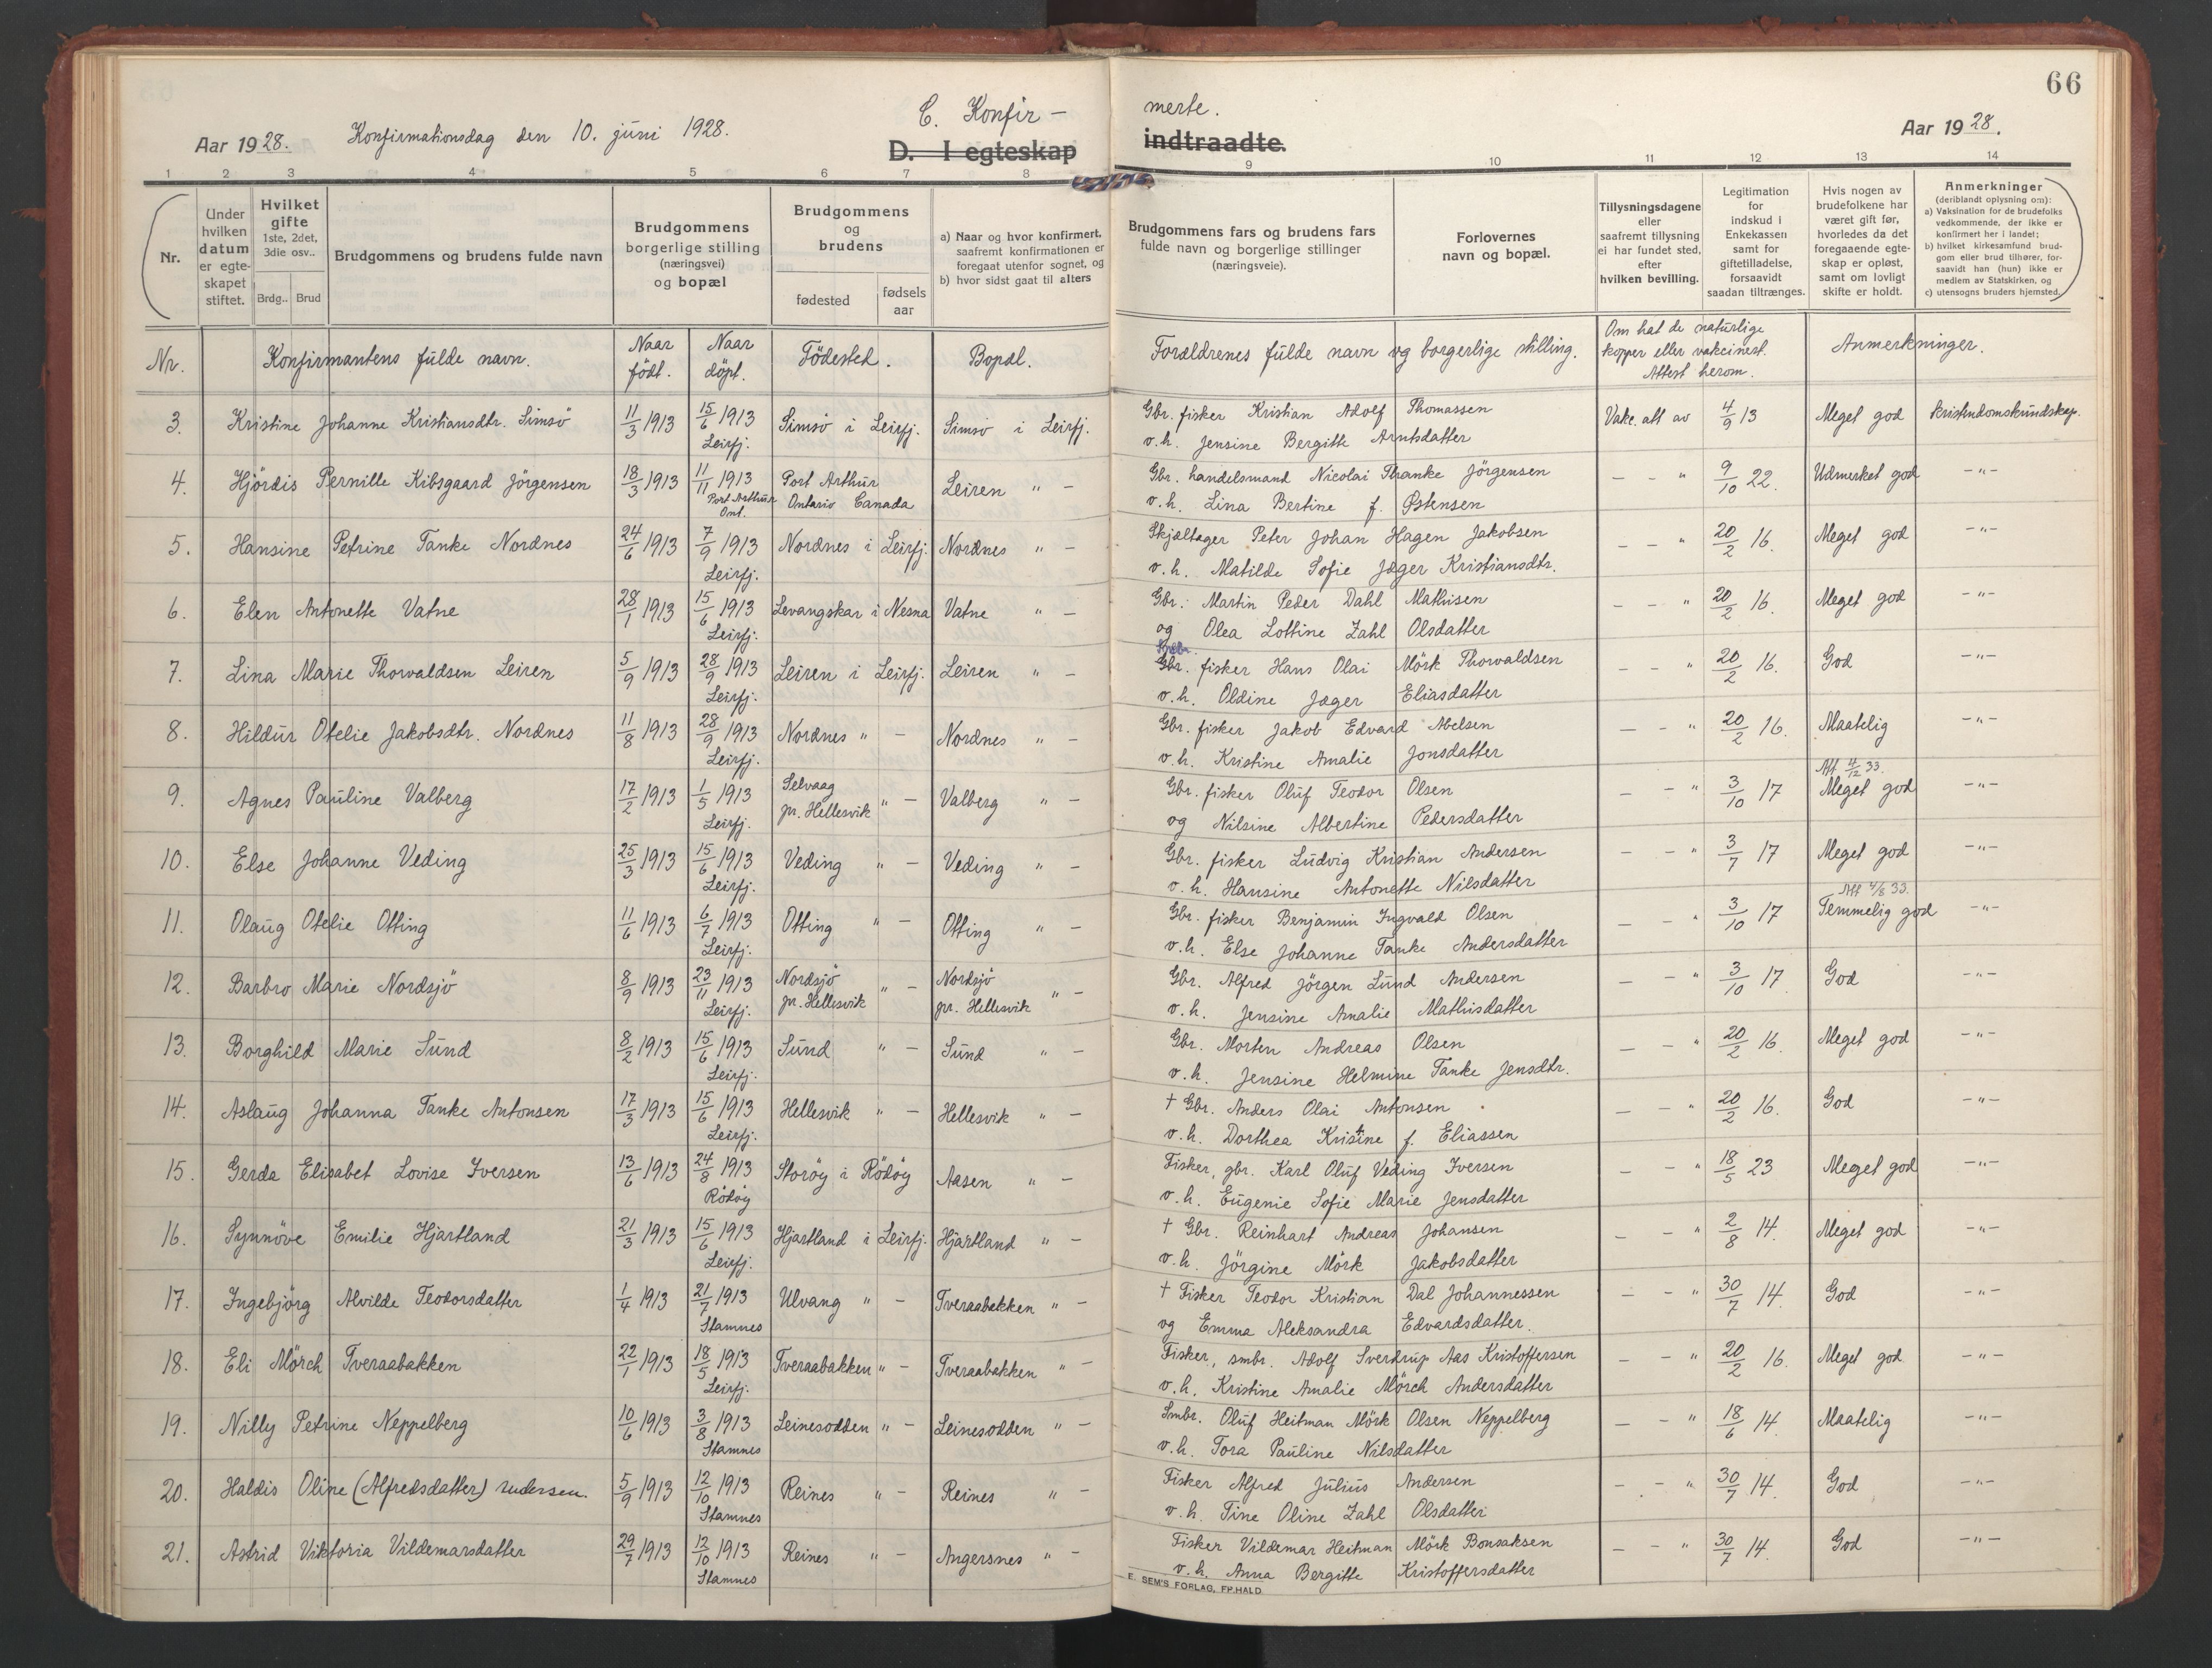 66
C. Konfir-
merte.
Aar 1928. Konfirmationsdag den 10. juni 1928.
D. I egteskap
indtraadte.
Aar 1928.
1 2 3 4 5 6 7 8 9 10 11 12 13 14
Nr.
Under hvilken datum er egteskapet stiftet.
Hvilket gifte 1ste, 2det, 3die osv..
Brdg.. Brud
Brudgommens og brudens fulde navn
Brudgommens borgerlige stilling (næringsvei) og bopæl
Brudgommens og brudens
fødested
fødsels aar
a) Naar og hvor konfirmert, saafremt konfirmationen er foregaat utenfor sognet, og
b) hvor sidst gaat til alters
Brudgommens fars og brudens fars fulde navn og borgerlige stillinger (næringsveie).
Forlovernes navn og bopæl.
Tillysningsdagene eller saafremt tillysning ei har fundet sted, efter hvilken bevilling.
Legitimation for indskud i Enkekassen samt for giftetilladelse, forsaavidt saadan tiltrænges.
Hvis nogen av brudefolkene har været gift før, hvorledes da det foregaaende egteskap er opløst, samt om lovligt skifte er holdt.
Anmerkninger (deriblandt oplysning om):
a) Vaksination for de brudefolks vedkommende, der ikke er konfirmert her i landet;
b) hvilket kirkesamfund brudgom eller brud tilhører, forsaavidt han (hun) ikke er medlem av Statskirken, og
c) utensogns bruders hjemsted.
Nr. Konfirmantens fulde navn. Naar født. Naar døpt. Födested. Bopæl. Forældrenes fulde navn og borgerlige stilling. Om hat de naturlige kopper eller vakcinest. Attest herom. Anmerkninger.
3. Kristine Johanne Kristiansdtr. Simsö 11/3 1913 15/6 1913 Leirfj. Simsö i Leirfj. Simsö i Leirfj. Gbr. fisker Kristian Adolf Thomassen Vakc. att av 4/9 13 Meget god kristendomskundskap.
v. h. Jensine Bergitte Arntsdatter
4. Hjördis Pernille Kibsgaard Jörgensen 18/3 1913 11/11 1913 Port Arthur Ont. Port Arthur Ontario Canada Leiren " - Gbr. handelsmand Nicolai Thranke Jörgensen - - " 9/10 22. Udmerket god -"-
v. h. Lina Bertine f. Østensen
5. Hansine Petrine Tanke Nordnes 24/6 1913 7/9 1913 Leirfj. Nordnes i Leirfj. Nordnes " - Skjæltager Peter Johan Hagen Jakobsen - - " 20/2 16. Meget god -"-
v. h. Matilde Sofie Jæger Kristiansdtr.
6. Elen Antonette Vatne 28/1 1913 15/6 1913 Leirfj. Levangskar i Nesna Vatne " - Gbr. Martin Peder Dahl Mathisen - - " 20/2 16. Meget god -"-
og Olea Lottine Zahl Olsdatter
7. Lina Marie Thorvaldsen Leiren 5/9 1913 28/9 1913 Leirfj. Leiren i Leirfj. Leiren " - Gbr. fisker Hans Olai Mörk Thorvaldsen - - " 20/2 16. God -"-
v. h. Oldine Jæger Eliasdatter
8. Hildur Otelie Jakobsdtr. Nordnes 11/8 1913 28/9 1913 Leirfj. Nordnes " - Nordnes " - Gbr. fisker Jakob Edvard Abelsen - - " 20/2 16. Maatelig -"-
v. h. Kristine Amalie Jonsdatter
9. Agnes Pauline Valberg 17/2 1913 1/5 1913 Leirfj. Selvaag pr. Hellesvik " - Valberg " - Gbr. fisker Oluf Teodor Olsen - - " 3/10 17 Att 4/12 33. Meget god -"-
og Nilsine Albertine Pedersdatter
10. Else Johanne Veding 25/3 1913 15/6 1913 Leirfj. Veding " - Veding " - Gbr. fisker Ludvig Kristian Andersen - - " 3/7 17 Meget god -"-
v. h. Hansine Antonette Nilsdatter
11. Olaug Otelie Otting 11/6 1913 6/7 1913 Leirfj. Otting " - Otting " - Gbr. fisker Benjamin Ingvald Olsen - - " 3/10 17 Att 4/8 33. Temmelig god -"-
v. h. Else Johanne Tanke Andersdatter
12. Barbro Marie Nordsjö 8/9 1913 23/11 1913 Leirfj. Nordsjö pr. Hellesvik " - Nordsjö pr. Hellesvik " - Gbr. Alfred Jörgen Lund Andersen - - " 3/10 17 God -"-
v. h. Jensine Amalie Mathisdatter
13. Borghild Marie Sund 8/2 1913 15/6 1913 Leirfj. Sund " - Sund " - Gbr. Morten Andreas Olsen - - " 20/2 16. Meget god -"-
v. h. Jensine Helmine Tanke Jensdtr.
14. Aslaug Johanna Tanke Antonsen 17/3 1913 15/6 1913 Leirfj. Hellesvik " - Hellesvik " - † Gbr. Anders Olai Antonsen - - " 20/2 16. God -"-
v. h. Dorthea Kristine f. Eliassen
15. Gerda Elisabet Lovise Iversen 13/6 1913 24/8 1913 Rödöy Storöy i Rödöy Aasen " - Fisker, gbr. Karl Oluf Veding Iversen - - " 18/5 23 Meget god -"-
v. h. Eugenie Sofie Marie Jensdatter
16. Synnöve Emilie Hjartland 21/3 1913 15/6 1913 Leirfj. Hjartland i Leirfj. Hjartland " - † Gbr. Reinhart Andreas Johansen - - " 2/8 14. Meget god -"-
v. h. Jörgine Mörk Jakobsdatter
17. Ingebjörg Alvilde Teodorsdatter 1/4 1913 21/7 1913 Stamnes Ulvang " - Tveraabakken " - † Fisker Teodor Kristian Dal Johannessen - - " 30/7 14. God -"-
og Emma Aleksandra Edvardsdatter.
18. Eli Mörch Tveraabakken 22/1 1913 18/5 1913 Leirfj. Tveraabakken " - Tveraabakken " - Fisker, smbr. Adolf Sverdrup Aas Kristoffersen - - " 20/2 16. Meget god -"-
v. h. Kristine Amalie Mörch Andersdatter
19. Nilly Petrine Neppelberg 10/6 1913 3/8 1913 Stamnes Leinesodden " - Leinesodden " - Smbr. Oluf Heitman Mörk Olsen Neppelberg - - " 18/6 14. Maatelig -"-
v. h. Tora Pauline Nilsdatter
20. Haldis Oline (Alfredsdatter) Andersen. 5/9 1913 12/10 1913 Stamnes Reines " - Reines " - Fisker Alfred Julius Andersen - - " 30/7 14. God -"-
v. h. Tine Oline Zahl Olsdatter
21. Astrid Viktoria Vildemarsdatter 29/7 1913 12/10 1913 Stamnes Reines " - Angersnes " - Fisker Vildemar Heitman Mörk Bonsaksen - - " 30/7 14. God -"-
v. h. Anna Bergitte Kristoffersdatter
E. SEM'S FORLAG, FR.HALD